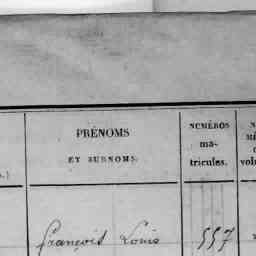 PRÉNOMS
ET SURNOMS.
NUMÉROS
ma-
tricules.
françois Louis
557